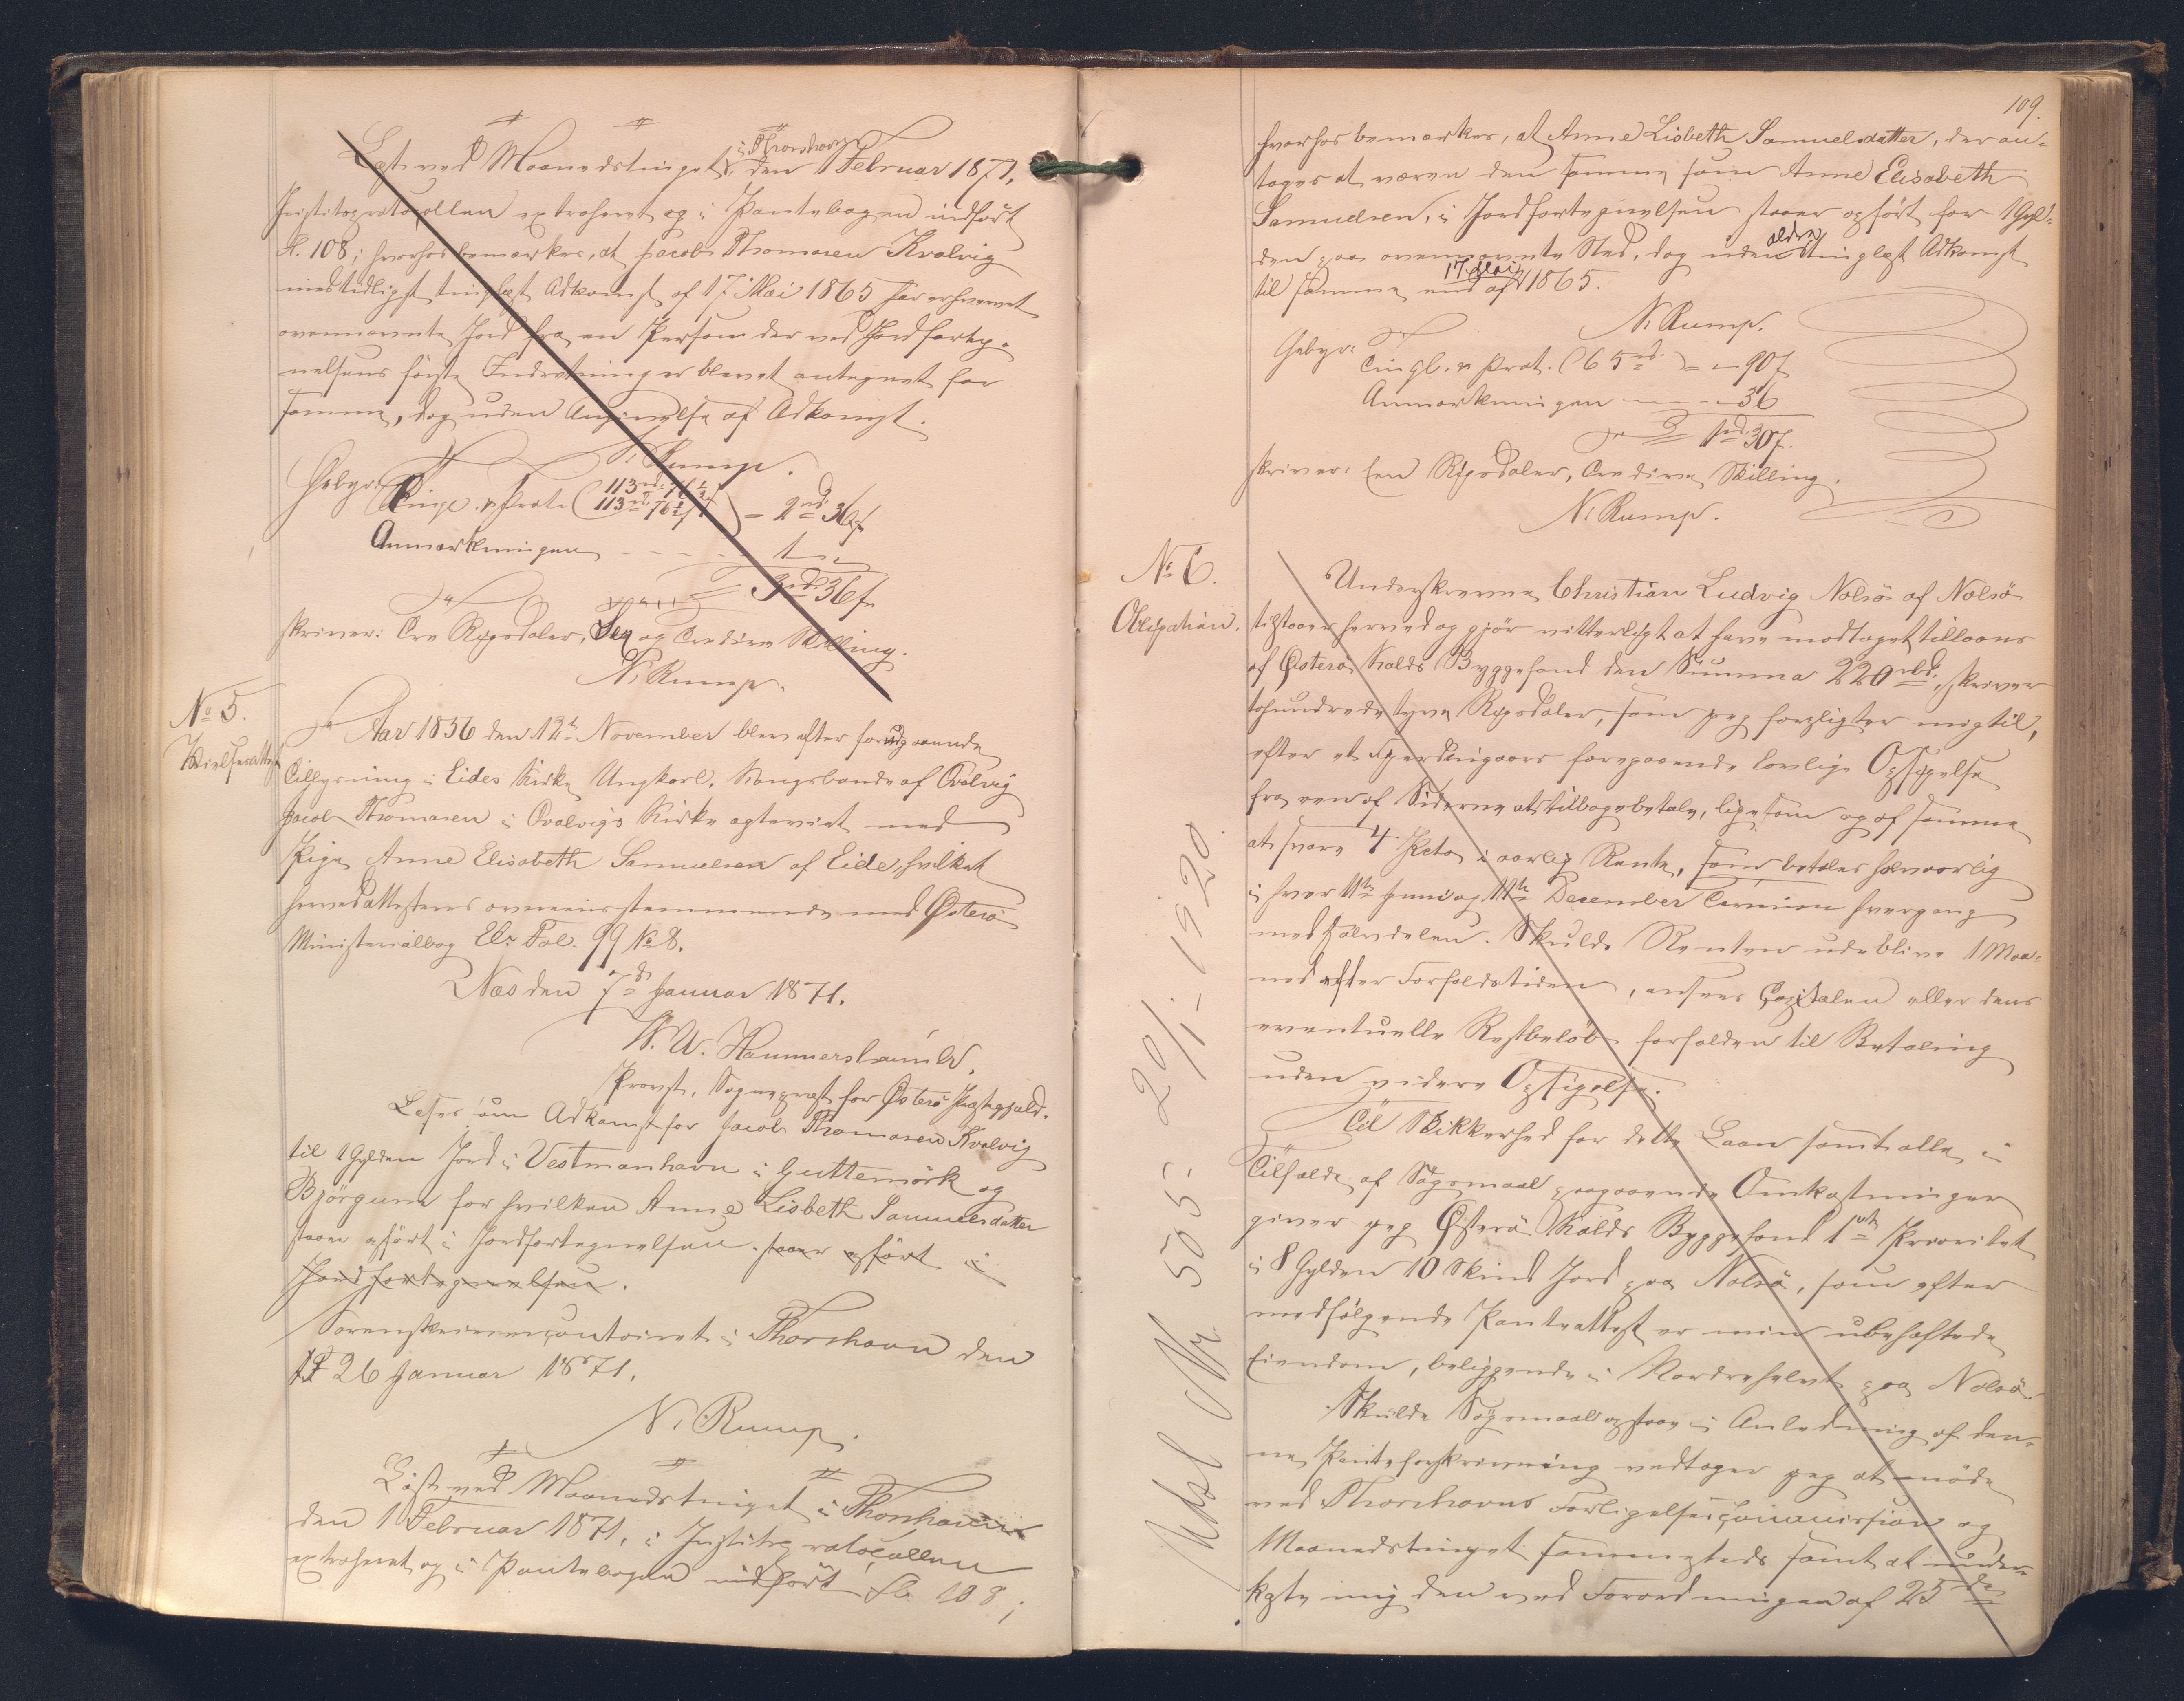 Læst ved Maanedstinget i Thorshavn den 1 Februar 1871,
Justitsprotocollen extraheret og i Pantebogen indført
fl. 108; hvorhos bemærkes, at Jacob Thomasen Kvalvig
med tidligst tinglæst Adkomst af 17 Mai 1865 har erhvervet
ovennævnte Jord fra en Person der ved Jordforteg-
nelsens første Indretning er blevet antegnet for
samme, dog uden Angivelse af Adkomst.
N. Rump.
Gebyr:
Tingl. & Prot. (113 rd. 76½ / 113 rd. 76½ f) = 2 rd 36 f
Anmærkningen - - - - - 1 "
= 3 rd. 36 f.
skriver: Tre Rigsdaler, Sex og Tredive Skilling.
N. Rump.
No 5.
Vielsesattest
Aar 1856 den 12te November blev efter forudgaaende
Tillysning i Eides Kirke Ungkarl, Kongsbonde af Qvalvig
Jacob Thomasen i Qvalvigs Kirke ægteviet med
Pige Anne Elisabeth Samuelsen af Eide, hvilket
herved attesteres overeensstemmende med Østerø
Ministerialbog Fol. 99 No 8.
Næs den 7de Januar 1871.
V. U. Hammershaimb,
Provst, Sognepræst for Østerø Præstegjæld.
Læses som Adkomst for Jacob Thomasen Kvalvig
til 1 Gylden Jord i Vestmanhavn i Guttemørk og
Bjørgum for hvilken Anne Lisbeth Samuelsdatter
staaer opført i Jordfortegnelsen. staaer opført i
Jordfortegnelsen.
Sorenskrivercontoiret i Thorshavn den
26 Januar 1871.
N. Rump.
Læst ved Maanedstinget i Thorshavn
den 1 Februar 1871, i Justitsprotocollen
extraheret og i Pantebogen indført fl. 108;
109.
hvorhos bemærkes, at Anne Lisbeth Samuelsdatter, der an-
tages at være den samme som Anne Elisabeth
Samuelsen, i Jordfortegnelsen staaer opført for 1 Gyl-
den paa ovennævnte Sted, dog uden ældre tinglæst Adkomst
til samme end af 17 Mai 1865.
N. Rump.
Gebyr:
Tingl. & Prot. (65 rd.) = " 90 f
Anmærkningen - - - " 36
= 1 rd. 30 f.
skriver: Een Rigsdaler, Tredive Skilling.
N. Rump.
No 6.
Obligation.
Underskrevne Christian Ludvig Nolsø af Nolsø
tilstaaer herved og gjør vitterligt at have modtaget tillaans
af Østerø Kalds Byggefond den Summa 220 rbd., skriver
tohundrede tyve Rigsdaler, som jeg forpligter mig til,
efter et Fjerdingaars foregaaende lovlige Opsigelse
fra een af Siderne at tilbagebetale, ligesom og af samme
at svare 4 Pcto i aarlig Rente, som betales halvaarlig
i hver 11te Juni og 11te December Termin hvergang
med Halvdelen. Skulde Renten udeblive 1 Maa-
ned efter Forfaldstiden, ansees Capitalen eller dens
eventuelle Restbeløb forfalden til Betaling
uden videre Opsigelse.
Til Sikkerhed for dette Laan samt alle i
Tilfælde af Søgsmaal paagaaende Omkostninger
giver jeg Østerø Kalds Byggefond 1ste Prioritet
i 8 Gylden 10 Skind Jord paa Nolsø, som efter
medfølgende Panteattest er min ubehæftede
Eiendom, beliggende i Nordrehelvt paa Nolsø.
Skulde Søgsmaal opstaae i Anledning af den-
ne Panteforskrivning vedtager jeg at møde
ved Thorshavns Forligelsescommission og
Maanedstinget sammesteds samt at under-
kaste mig den ved Forordningen af 25de
Udsl. Nr. 505 - 20/1 - 1920.